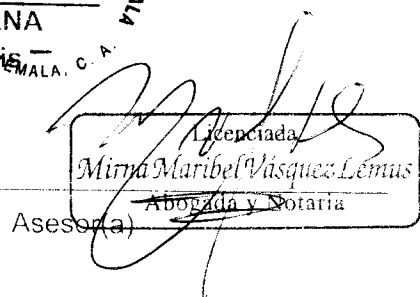 ANA
EMALA, C. A.
Licenciada
Mirna Maribel Vásquez Lemus
Abogada y Notaria
Asesor(a)